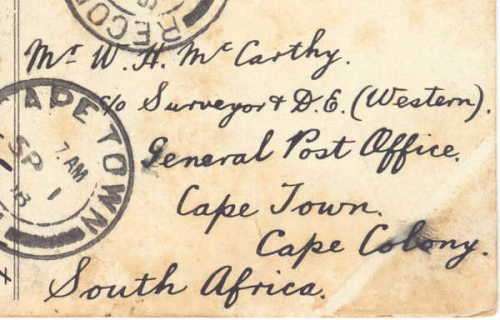 RECO
Mr W. H. McCarthy.
c/o Surveyor & D.E. (Western).
General Post Office.
Cape Town.
Cape Colony.
South Africa.
CAPE TOWN
7 AM
SP 1